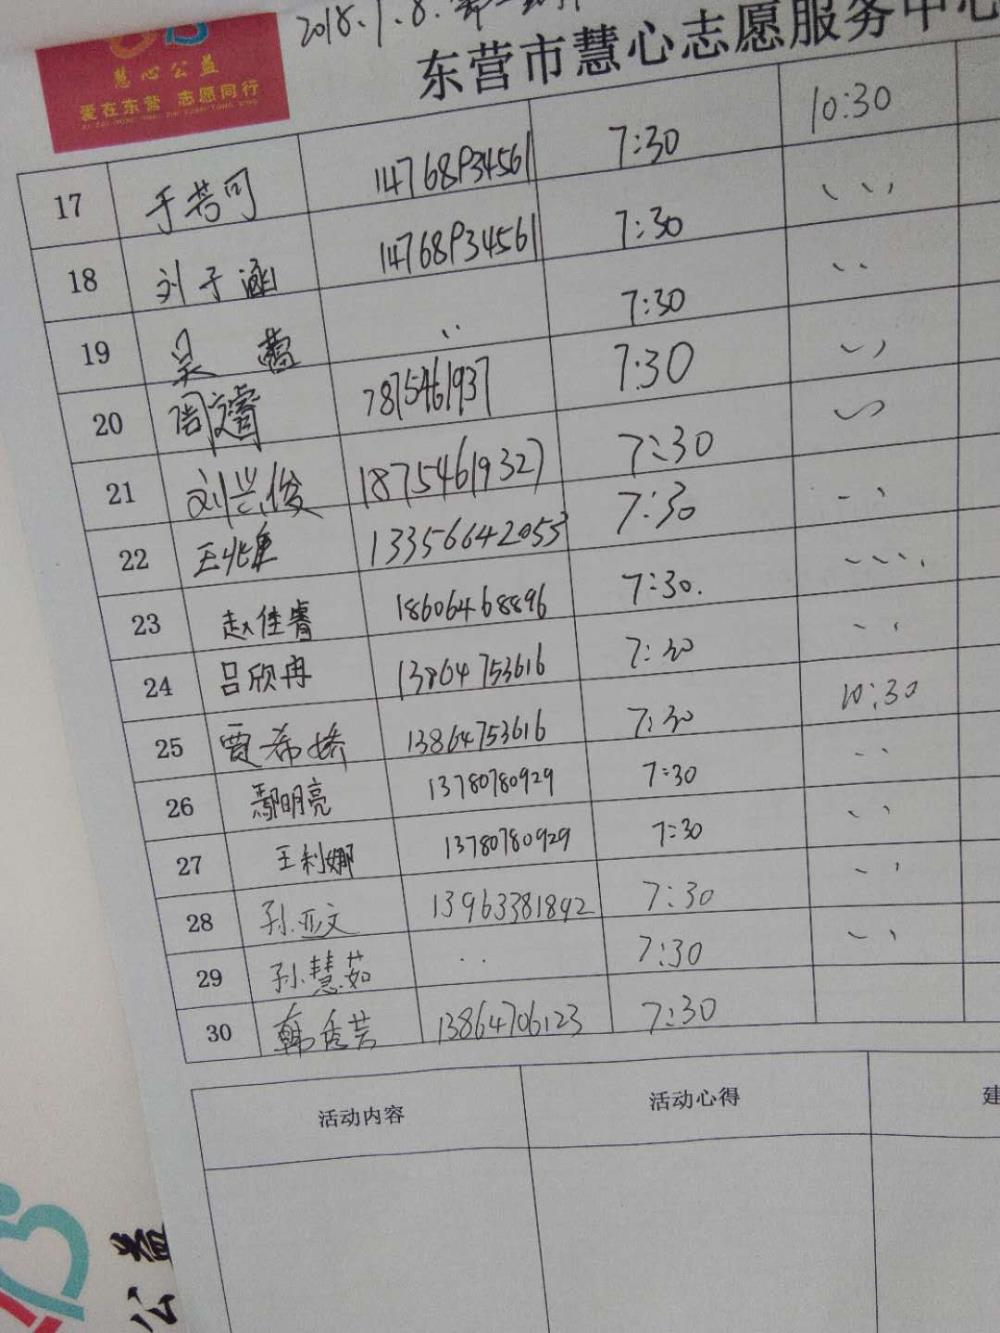 2018.1.8.
东营市慧心志愿服务中心
慧心公益
爱在东营 志愿同行
17 于若可 14768934561 7:30 10:30
18 刘子涵 14768934561 7:30 、、、
19 吴蕾 、、 7:30 、、
20 周文睿 7875461937 7:30 、、
21 刘兴俊 18754619327 7:30
22 王兆 13356642053 7:30 、、
23 赵佳睿 18606468896 7:30. 、、、
24 吕欣冉 13864753616 7:30 、、
25 贾希娇 13864753616 7:30 10:30
26 鄢明亮 13780780929 7:30 、、
27 王利娜 13780780929 7:30 、、
28 孙亚文 13963381892 7:30 、、
29 孙慧茹 、、 7:30 、、
30 韩秀芸 13864706123 7:30
活动内容 活动心得 建
公益